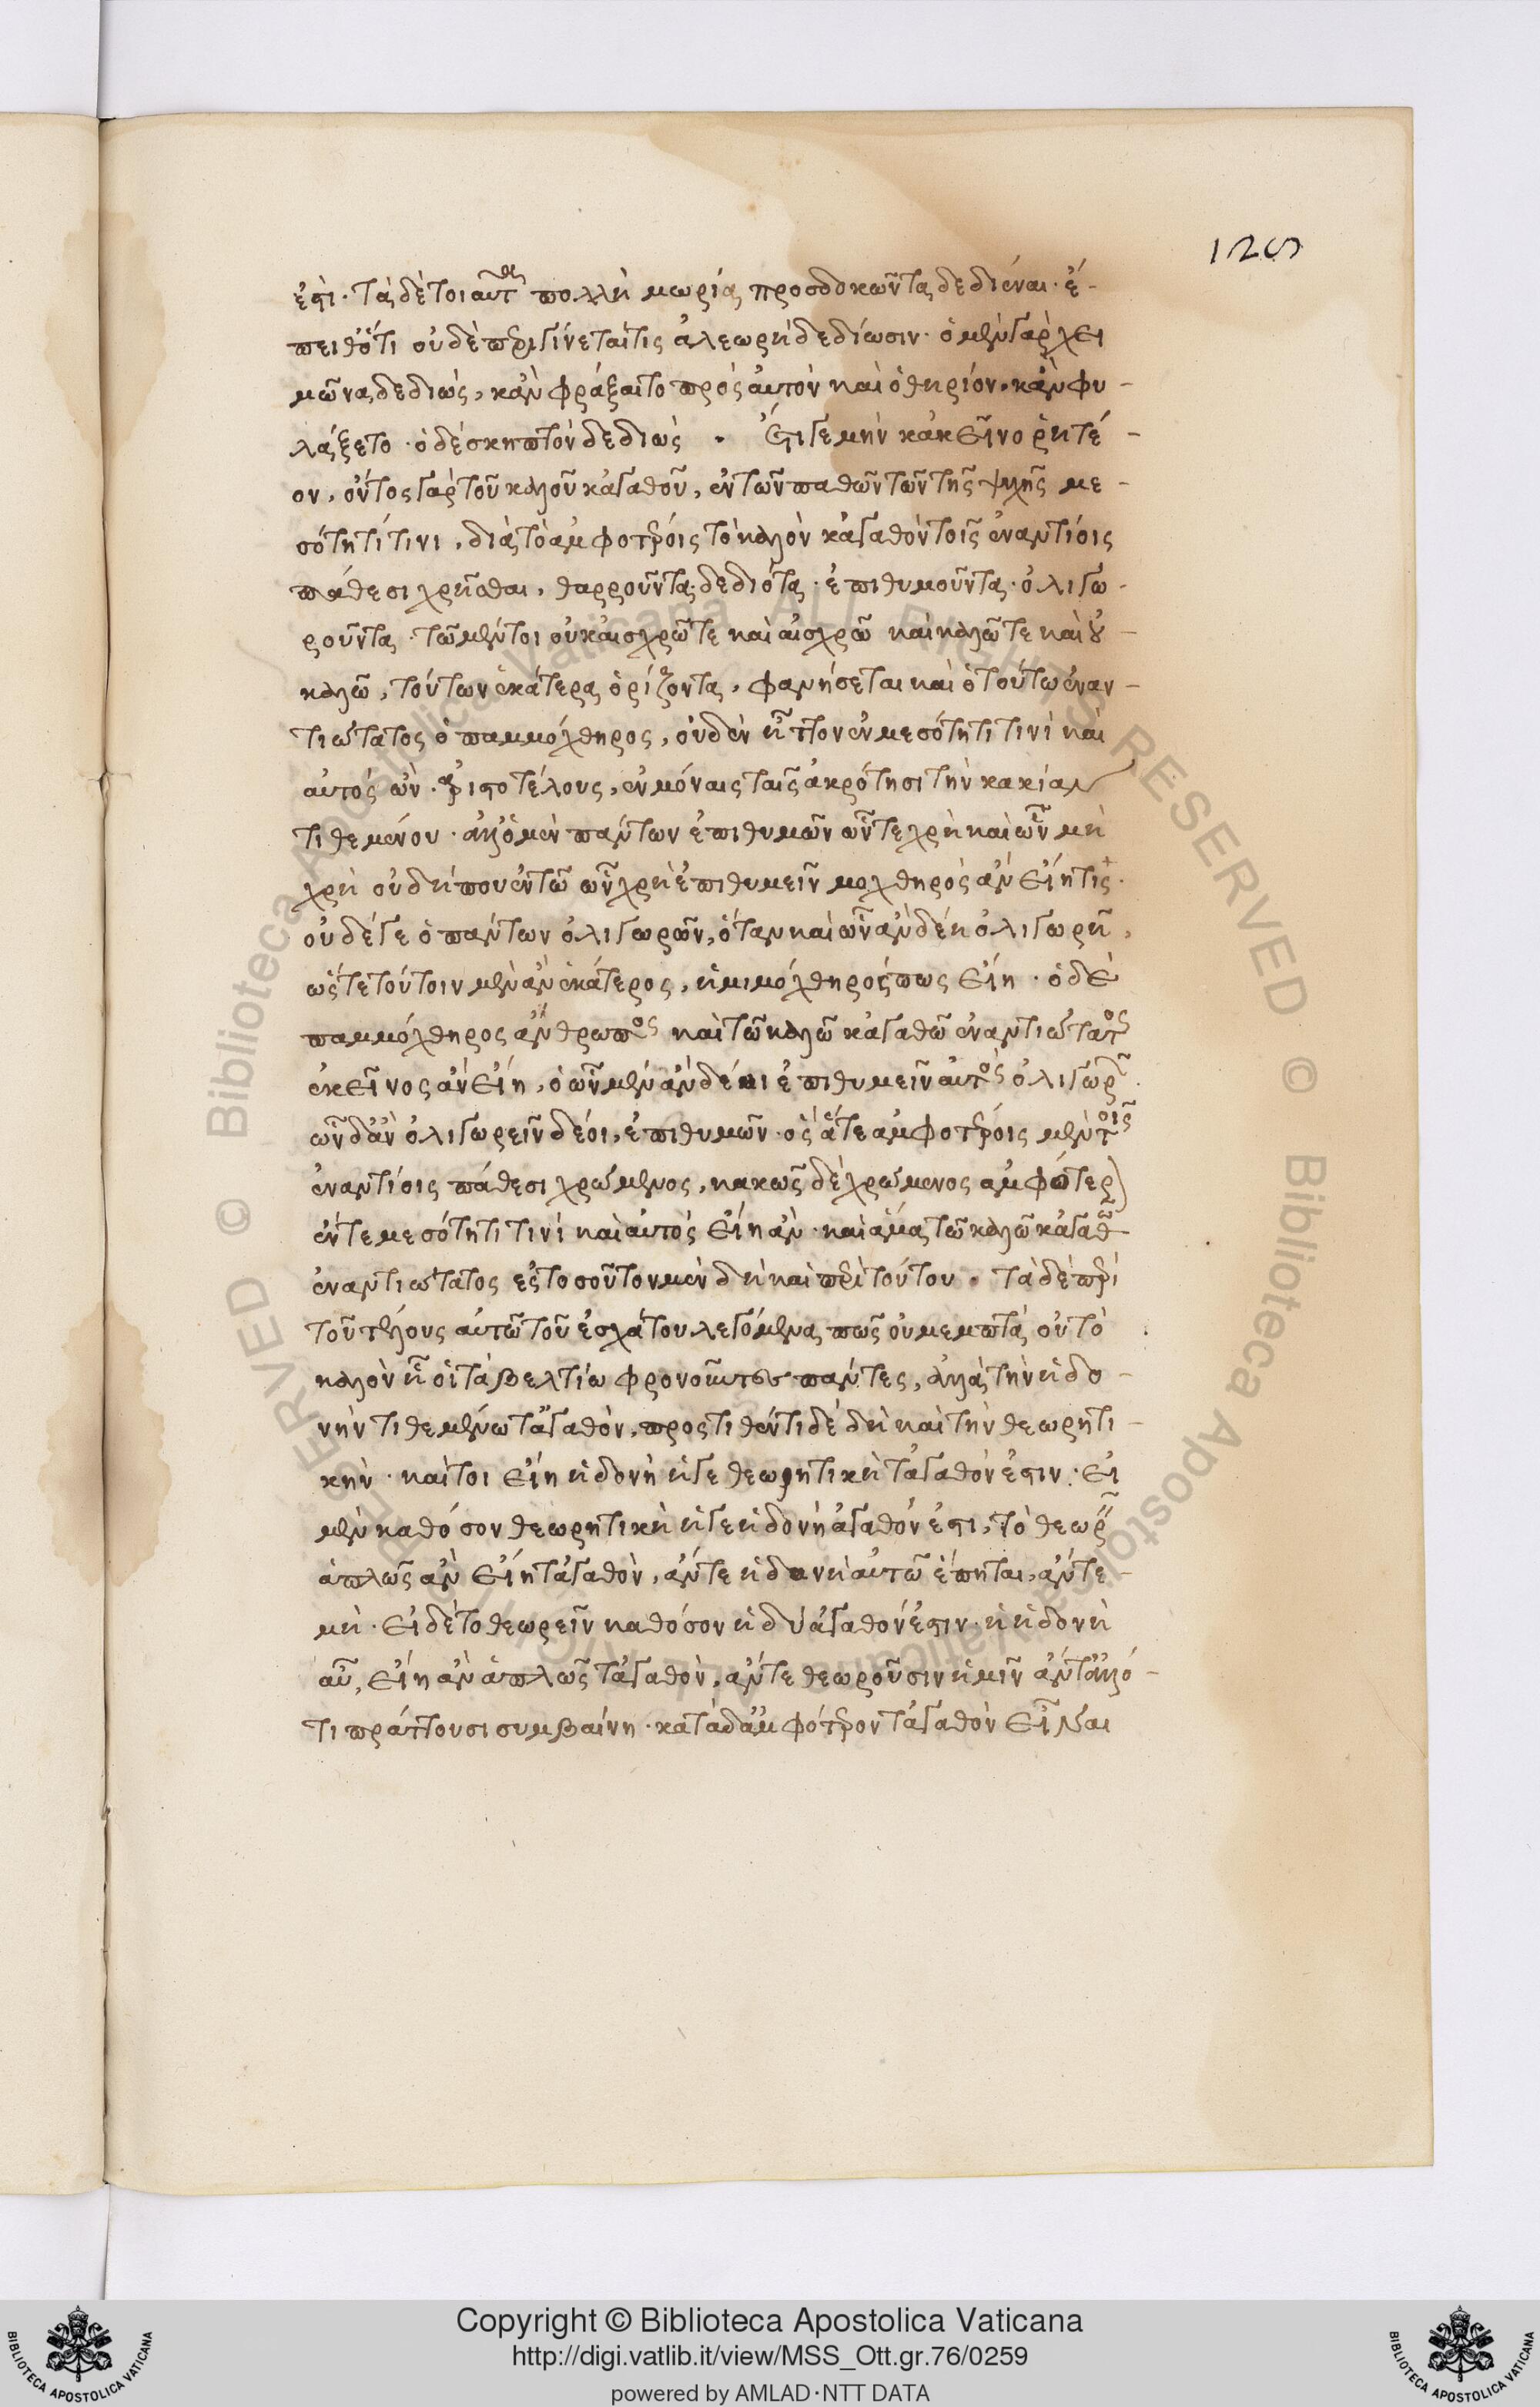 125
ἐστι· τὰ δὲ τοιαῦτα πολλὴ μωρία προσδοκῶντα δεδιέναι· ἔ-
πειθ' ὅτι οὐδὲ περιγίνεταί τις ἀλεωρὴ δεδίωσιν· ὁ μὲν γὰρ χει
μῶνα δεδιὼς, κἂν φράξαιτο πρὸς αὐτὸν καὶ ὁ θηρίον, κἂν φυ-
λάξετο· ὁ δὲ σκηπτὸν δεδιὼς. Ἔτι γε μὴν κἀκεῖνο ῥητέ-
ον, ὄντος γὰρ τοῦ καλοῦ κἀγαθοῦ, ἐν τῶν παθῶν τῶν τῆς ψυχῆς με-
σότητί τινι, διὰ τὸ ἀμφοτέροις τὸν καλὸν κἀγαθὸν τοῖς ἐναντίοις
πάθεσι χρῆσθαι, θαρροῦντα· δεδιότα· ἐπιθυμοῦντα· ὀλιγω-
ροῦντα· τῶ μέντοι οὐκ αἰσχρῶ τε καὶ αἰσχρῶ καὶ καλῶ τε καὶ οὐ-
καλῶ, τούτων ἑκάτερα ὁρίζοντα, φανήσεται καὶ ὁ τούτω ἐναν-
τιώτατος ὁ παμμόχθηρος, οὐδὲν ἧττον ἐν μεσότητι τινὶ καὶ
αὐτὸς ὤν· ἀριστοτέλους, ἐν μόναις ταῖς ἀκρότησι τὴν κακίαν
τιθεμένου· ἀλλ' ὁ μὲν πάντων ἐπιθυμῶν ὧν τε χρὴ καὶ ὧν μὴ
χρὴ οὐ δήπου ἐν τῶ ὧν χρὴ ἐπιθυμεῖν μοχθηρὸς ἂν εἴη τις·
οὐδέ γε ὁ πάντων ὀλιγωρῶν, ὅταν καὶ ὧν ἂν δέη ὀλιγωρῇ,
ὥστε τούτοιν μὲν ἂν ἑκάτερος, ἡμιμόχθηρός πως εἴη· ὁ δὲ
παμμόχθηρος ἄνθρωπος καὶ τῶ καλῶ κἀγαθῶ ἐναντιώτατος
ἐκεῖνος ἂν εἴη, ὁ ὧν μὲν ἂν δέοι ἐπιθυμεῖν αὐτὸς ὀλιγωρῶν
ὧν δ' ἂν ὀλιγωρεῖν δέοι, ἐπιθυμῶν· ὃς ἅτε ἀμφοτέροις μὲν τοῖς
ἐναντίοις πάθεσι χρώμενος, κακῶς δὲ χρώμενος ἀμφοτέροις
ἔν τε μεσότητι τινὶ καὶ αὐτὸς εἴη ἂν· καὶ ἅμα τῶ καλῶ κἀγαθῶ
ἐναντιώτατος ἐς τοσοῦτον μὲν δὴ καὶ περὶ τούτου. τὰ δὲ περὶ
τοῦ τέλους αὐτῶ τοῦ ἐσχάτου λεγόμενα πῶς οὐ μεμπτὰ οὐ τὸ
καλὸν ᾗ οἱ τὰ βελτίω φρονοῦντες πάντες, ἀλλὰ τὴν ἡδο-
νὴν τιθεμένω τἀγαθὸν, προστιθέντι δὲ δὴ καὶ τὴν θεωρητι-
κὴν· καίτοι εἴη ἡδονὴ ἥγε θεωρητικὴ τἀγαθόν ἐστιν· εἰ
μὲν καθόσον θεωρητικὴ ἥγε ἡδονὴ ἀγαθόν ἐστι, τὸ θεωρεῖν
ἁπλῶς ἂν εἴη τἀγαθὸν, ἄν τε ἡδονὴ αὐτῶ ἕπηται, ἄν τε-
μὴ· εἰ δὲ τὸ θεωρεῖν καθόσον ἡδὺ ἀγαθόν ἐστιν· ἡ ἡδονὴ
αὖ, εἴη ἂν ἁπλῶς τἀγαθὸν, ἄν τε θεωροῦσιν ἡμῖν ἄν τ' ἄλλό-
τι πράττουσι συμβαίνη· κατὰ δ' ἀμφότερον τἀγαθὸν εἶναι
Copyright © Biblioteca Apostolica Vaticana
http://digi.vatlib.it/view/MSS_Ott.gr.76/0259
powered by AMLAD·NTT DATA